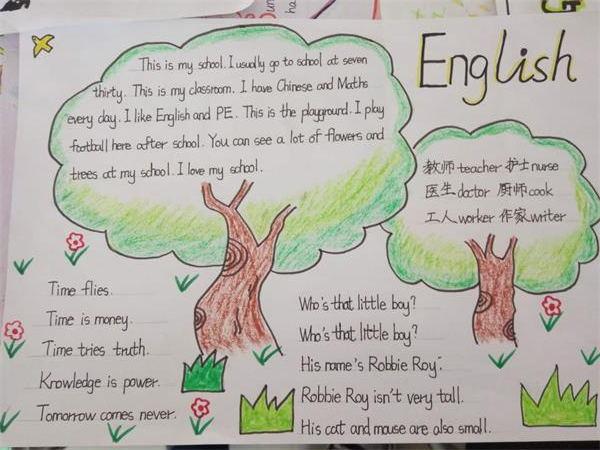 English
This is my school. I usually go to school at seven
thirty. This is my classroom. I have Chinese and Maths
every day. I like English and PE. This is the playground. I play
football here after school. You can see a lot of flowers and
trees at my school. I love my school.
教师 teacher 护士 nurse
医生 doctor 厨师 cook
工人 worker 作家 writer
Time flies.
Time is money.
Time tries truth.
Knowledge is power.
Tomorrow comes never.
Who's that little boy?
Who's that little boy?
His name's Robbie Roy.
Robbie Roy isn't very tall.
His cat and mouse are also small.